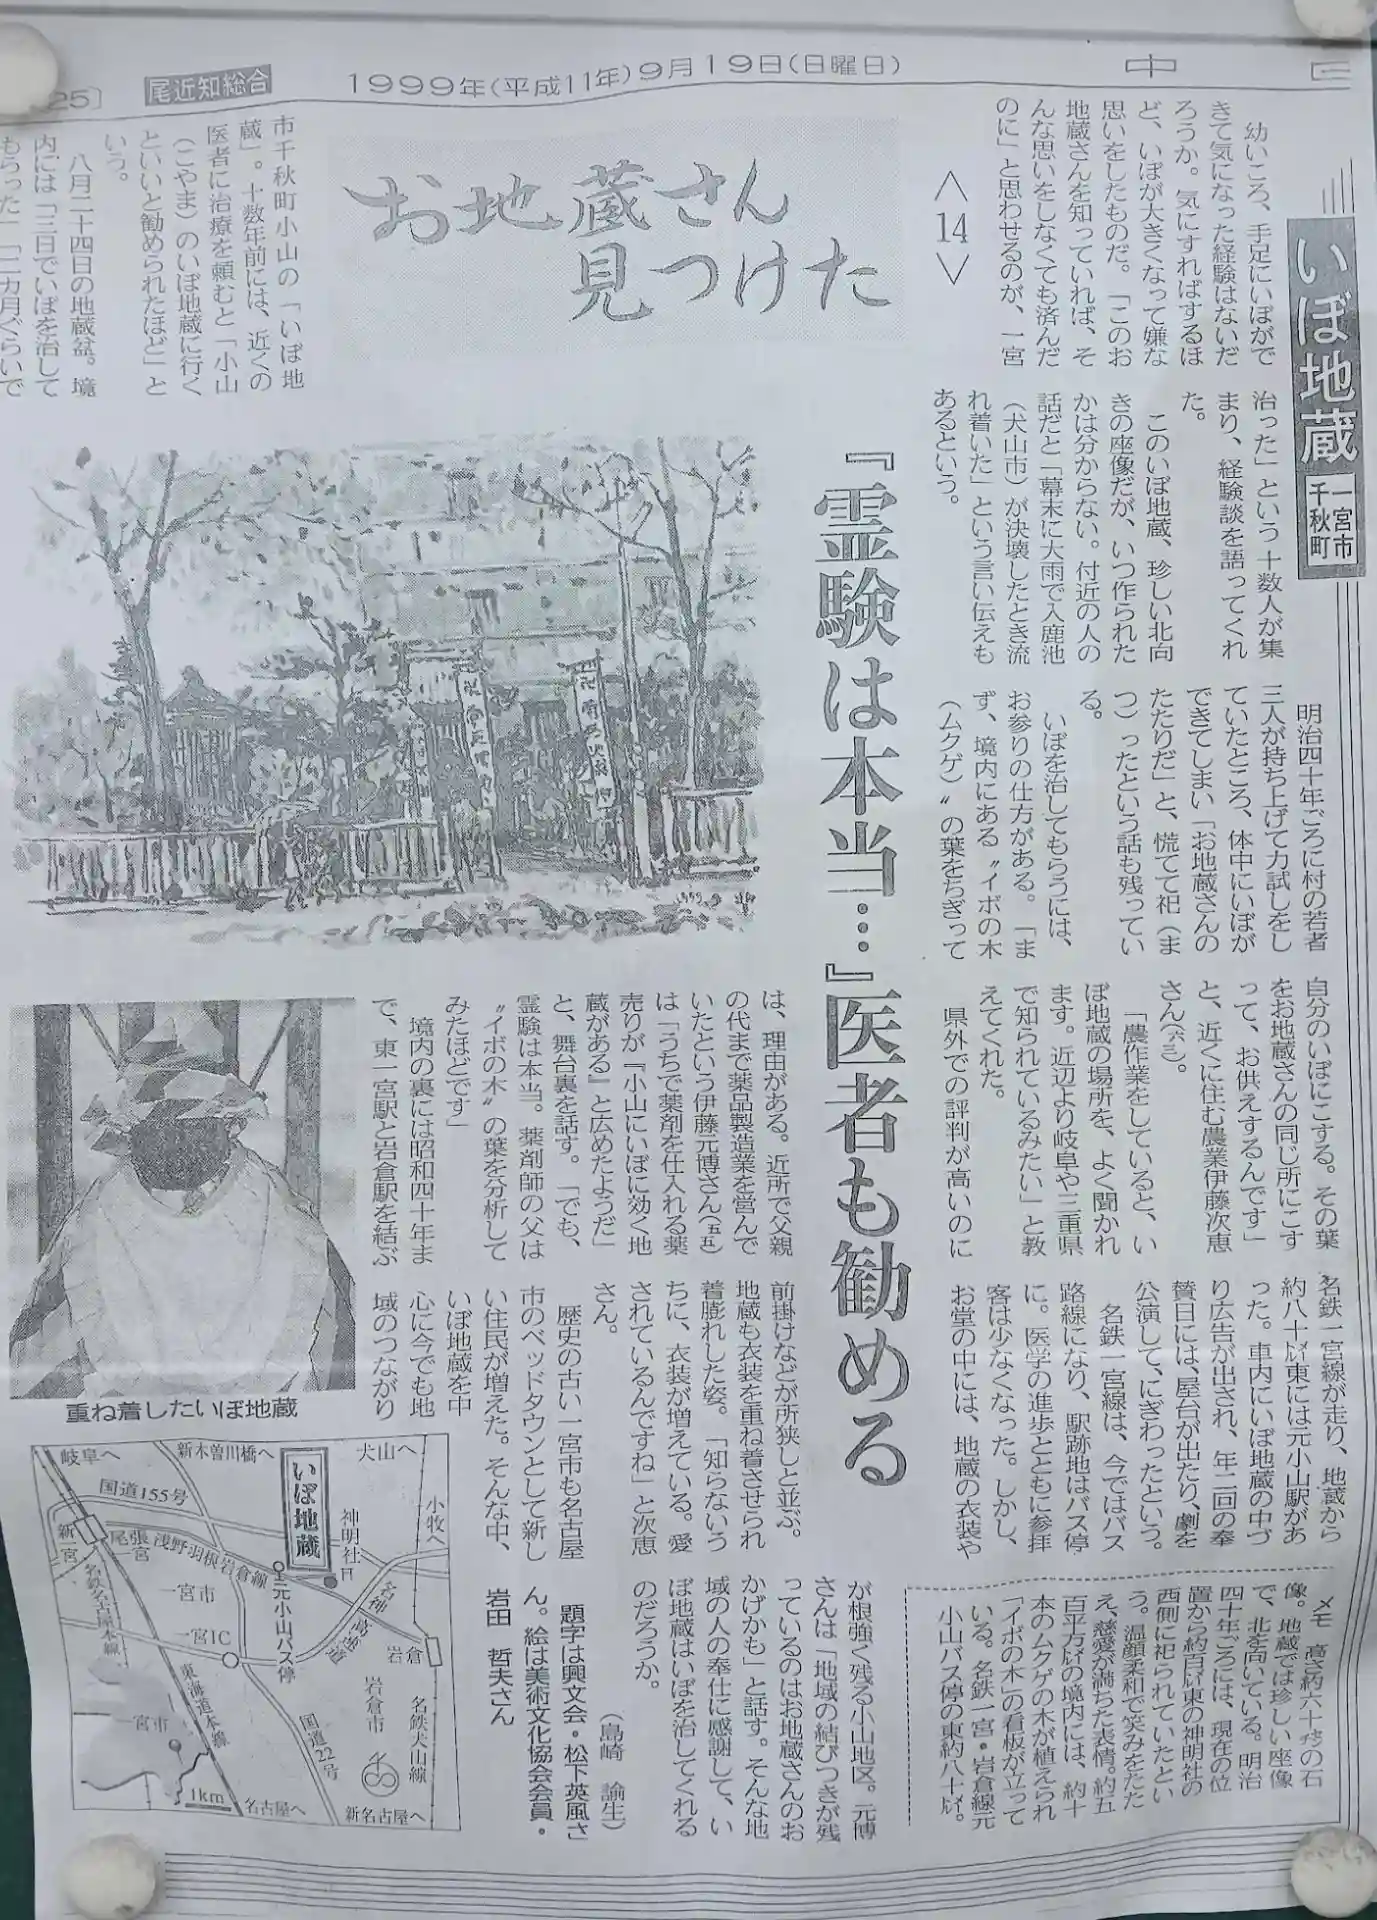 25〕
尾近知総合
1999年(平成11年)9月19日(日曜日)
中
日
いぼ地蔵
一宮市
千秋町
お地蔵さん
見つけた
〈14〉
『霊験は本当…』医者も勧める
幼いころ、手足にいぼがで
きて気になった経験はないだ
ろうか。気にすればするほ
ど、いぼが大きくなって嫌な
思いをしたものだ。「このお
地蔵さんを知っていれば、そ
んな思いをしなくても済んだ
のに」と思わせるのが、一宮
市千秋町小山の「いぼ地
蔵」。十数年前には、近くの
医者に治療を頼むと「小山
(こやま)のいぼ地蔵に行く
といいと勧められたほど」と
いう。
八月二十四日の地蔵盆。境
内には「三日でいぼを治して
もらった」「一カ月ぐらいで
治った」という十数人が集
まり、経験談を語ってくれ
た。
このいぼ地蔵、珍しい北向
きの座像だが、いつ作られた
かは分からない。付近の人の
話だと「幕末に大雨で入鹿池
(犬山市)が決壊したとき流
れ着いた」という言い伝えも
あるという。
明治四十年ごろに村の若者
三人が持ち上げて力試しをし
ていたところ、体中にいぼが
できてしまい「お地蔵さんの
たたりだ」と、慌てて祀(ま
つ)ったという話も残ってい
る。
いぼを治してもらうには、
お参りの仕方がある。「ま
ず、境内にある〝イボの木
(ムクゲ)〟の葉をちぎって
自分のいぼにこする。その葉
をお地蔵さんの同じ所にこす
って、お供えするんです」
と、近くに住む農業伊藤次恵
さん(六三)。
「農作業をしていると、い
ぼ地蔵の場所を、よく聞かれ
ます。近辺より岐阜や三重県
で知られているみたい」と教
えてくれた。
県外での評判が高いのに
は、理由がある。近所で父親
の代まで薬品製造業を営んで
いたという伊藤元博さん(五五)
は「うちで薬剤を仕入れる薬
売りが『小山にいぼに効く地
蔵がある』と広めたようだ」
と、舞台裏を話す。「でも、
霊験は本当。薬剤師の父は
〝イボの木〟の葉を分析して
みたほどです」
境内の裏には昭和四十年ま
で、東一宮駅と岩倉駅を結ぶ
名鉄一宮線が走り、地蔵から
約八十㍍東には元小山駅があ
った。車内にいぼ地蔵の中づ
り広告が出され、年二回の奉
賛日には、屋台が出たり、劇を
公演して、にぎわったという。
名鉄一宮線は、今ではバス
路線になり、駅跡地はバス停
に。医学の進歩とともに参拝
客は少なくなった。しかし、
お堂の中には、地蔵の衣装や
前掛けなどが所狭しと並ぶ。
地蔵も衣装を重ね着させられ
着膨れした姿。「知らないう
ちに、衣装が増えている。愛
されているんですね」と次恵
さん。
歴史の古い一宮市も名古屋
市のベッドタウンとして新し
い住民が増えた。そんな中、
いぼ地蔵を中
心に今でも地
域のつながり
が根強く残る小山地区。元博
さんは「地域の結びつきが残
っているのはお地蔵さんのお
かげかも」と話す。そんな地
域の人の奉仕に感謝して、い
ぼ地蔵はいぼを治してくれる
のだろうか。
(島崎 諭生)
題字は興文会・松下英風さ
ん。絵は美術文化協会会員・
岩田 哲夫さん
メモ 高さ約六十㌢の石
像。地蔵では珍しい座像
で、北を向いている。明治
四十年ごろには、現在の位
置から約百㍍東の神明社の
西側に祀られていたとい
う。温顔柔和で笑みをたた
え、慈愛が満ちた表情。約五
百平方㍍の境内には、約十
本のムクゲの木が植えられ
「イボの木」の看板が立って
いる。名鉄一宮・岩倉線元
小山バス停の東約八十㍍。
重ね着したいぼ地蔵
岐阜へ
新木曽川橋へ
犬山へ
小牧へ
国道155号
いぼ地蔵
神明社
新一宮
尾張一宮
浅野羽根岩倉線
名鉄名古屋本線
一宮市
一宮IC
元小山バス停
名神高速道
岩倉
岩倉市
名鉄犬山線
東海道本線
国道22号
一宮市
1km
名古屋へ
新名古屋へ